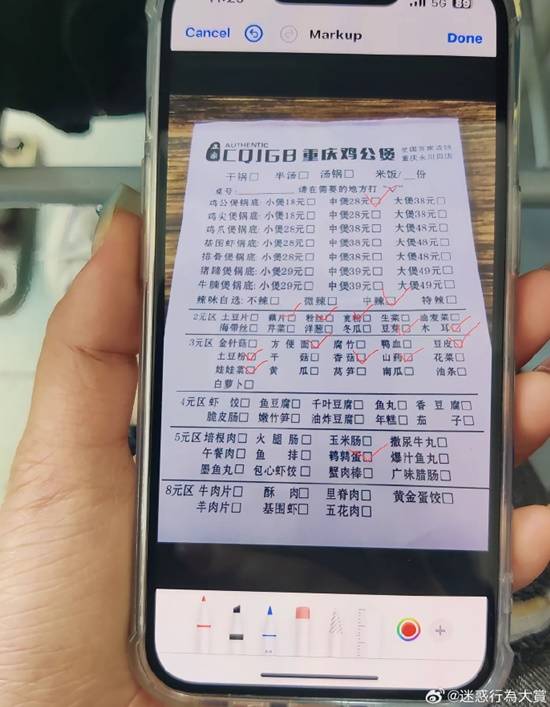 5G 80
Cancel Markup Done
AUTHENTIC
CQ1G8 重庆鸡公煲
重庆永川四店
干锅□ 半汤□ 汤锅□ 米饭/__份
桌号________ 请在需要的地方打“✓”
鸡公煲锅底:小煲18元□ 中煲28元□ 大煲38元□
鸡尖煲锅底:小煲18元□ 中煲28元□ 大煲38元□
鸡爪煲锅底:小煲28元□ 中煲38元□ 大煲48元□
基围虾锅底:小煲28元□ 中煲38元□ 大煲48元□
排骨煲锅底:小煲28元□ 中煲38元□ 大煲48元□
猪蹄煲锅底:小煲29元□ 中煲39元□ 大煲49元□
牛腩煲锅底:小煲29元□ 中煲39元□ 大煲49元□
辣味自选:不辣□ 微辣□ 中辣□ 特辣□
2元区 土豆片□ 藕片□ 粉丝□ 宽粉□ 生菜□ 油麦菜□
海带丝□ 芹菜□ 洋葱□ 冬瓜□ 豆芽□ 木耳□
3元区 金针菇□ 方便面□ 腐竹□ 鸭血□ 豆皮□
土豆粉□ 平菇□ 香菇□ 山药□ 花菜□
娃娃菜□ 黄瓜□ 莴笋□ 南瓜□ 油条□
白萝卜□
4元区 虾饺□ 鱼豆腐□ 千叶豆腐□ 鱼丸□ 香豆腐□
脆皮肠□ 嫩竹笋□ 油炸豆腐□ 年糕□ 茄子□
5元区 培根肉□ 火腿肠□ 玉米肠□ 撒尿牛丸□
午餐肉□ 鱼排□ 鹌鹑蛋□ 爆汁鱼丸□
墨鱼丸□ 包心虾饺□ 蟹肉棒□ 广味腊肠□
8元区 牛肉片□ 酥肉□ 里脊肉□ 黄金蛋饺□
羊肉片□ 基围虾□ 五花肉□
@迷惑行為大賞